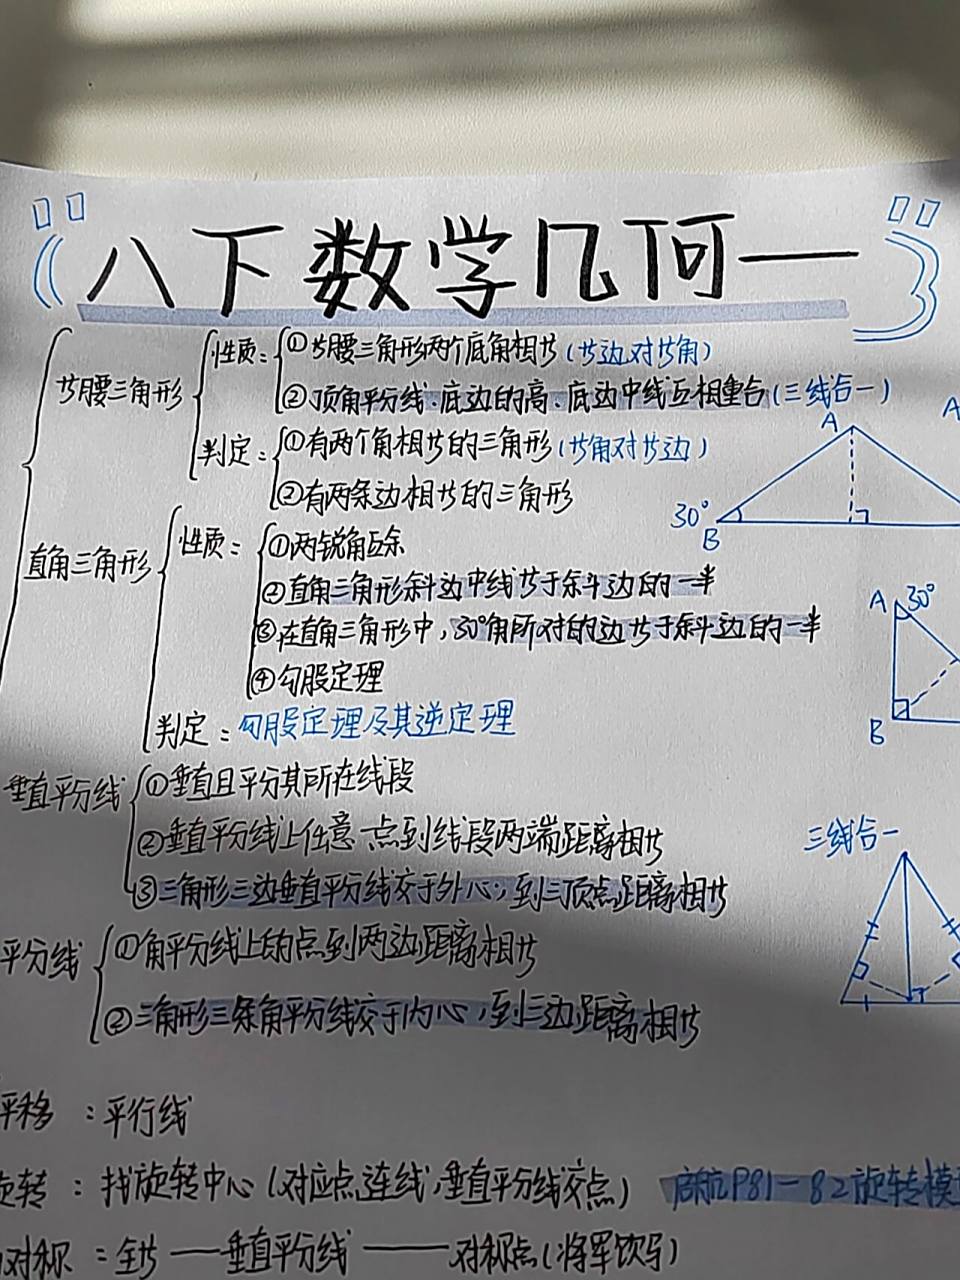 八下数学几何一
等腰三角形
性质：①等腰三角形两个底角相等（等边对等角）
②顶角平分线、底边的高、底边中线互相重合（三线合一）
判定：①有两个角相等的三角形（等角对等边）
②有两条边相等的三角形
A
A
30°
B
直角三角形
性质：①两锐角互余
②直角三角形斜边中线等于斜边的一半
③在直角三角形中，30°角所对的边等于斜边的一半
④勾股定理
判定：勾股定理及其逆定理
A 30°
B
垂直平分线 ①垂直且平分其所在线段
②垂直平分线上任意一点到线段两端距离相等
③三角形三边垂直平分线交于外心，到三顶点距离相等
三线合一
平分线 ①角平分线上的点到两边距离相等
②三角形三条角平分线交于内心，到三边距离相等
平移：平行线
旋转：找旋转中心（对应点连线，垂直平分线交点） P81-82旋转模
对称：全等——垂直平分线——对称点（将军饮马）